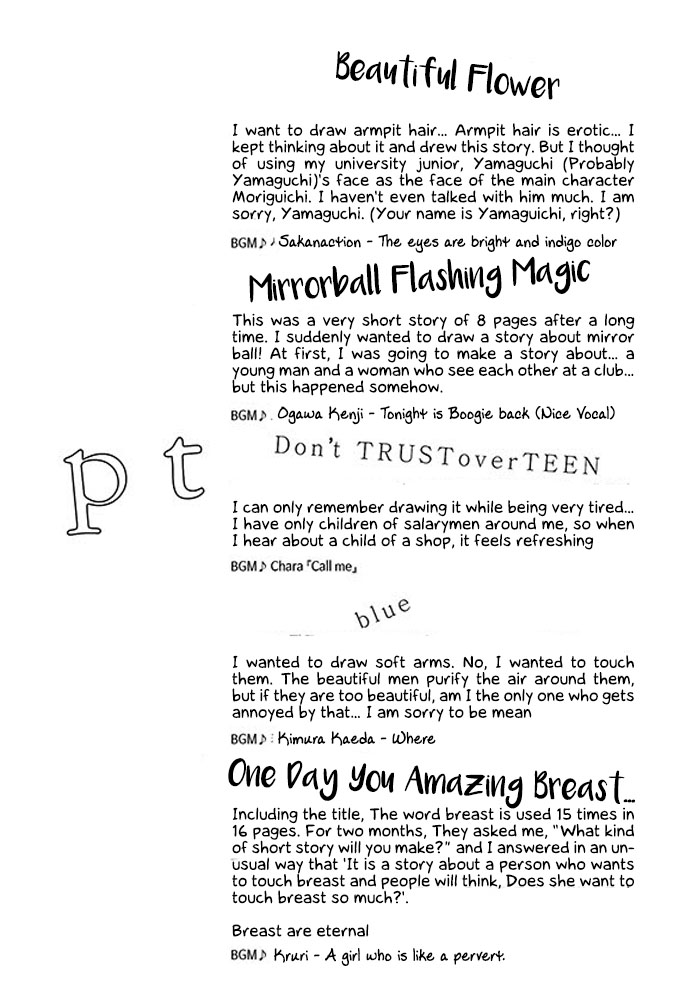 Beautiful Flower
I want to draw armpit hair... Armpit hair is erotic... I
kept thinking about it and drew this story. But I thought
of using my university junior, Yamaguchi (Probably
Yamaguchi)'s face as the face of the main character
Moriguichi. I haven't even talked with him much. I am
sorry, Yamaguchi. (Your name is Yamaguichi, right?)
BGM♪ Sakanaction - The eyes are bright and indigo color
Mirrorball Flashing Magic
This was a very short story of 8 pages after a long
time. I suddenly wanted to draw a story about mirror
ball! At first, I was going to make a story about... a
young man and a woman who see each other at a club...
but this happened somehow.
BGM♪ Ogawa Kenji - Tonight is Boogie back (Nice Vocal)
p t
Don't TRUSToverTEEN
I can only remember drawing it while being very tired...
I have only children of salarymen around me, so when
I hear about a child of a shop, it feels refreshing
BGM♪ Chara「Call me」
blue
I wanted to draw soft arms. No, I wanted to touch
them. The beautiful men purify the air around them,
but if they are too beautiful, am I the only one who gets
annoyed by that... I am sorry to be mean
BGM♪ Kimura Kaeda - Where
One Day You Amazing Breast...
Including the title, The word breast is used 15 times in
16 pages. For two months, They asked me, "What kind
of short story will you make?" and I answered in an un-
usual way that 'It is a story about a person who wants
to touch breast and people will think, Does she want to
touch breast so much?'.
Breast are eternal
BGM♪ Kruri - A girl who is like a pervert.